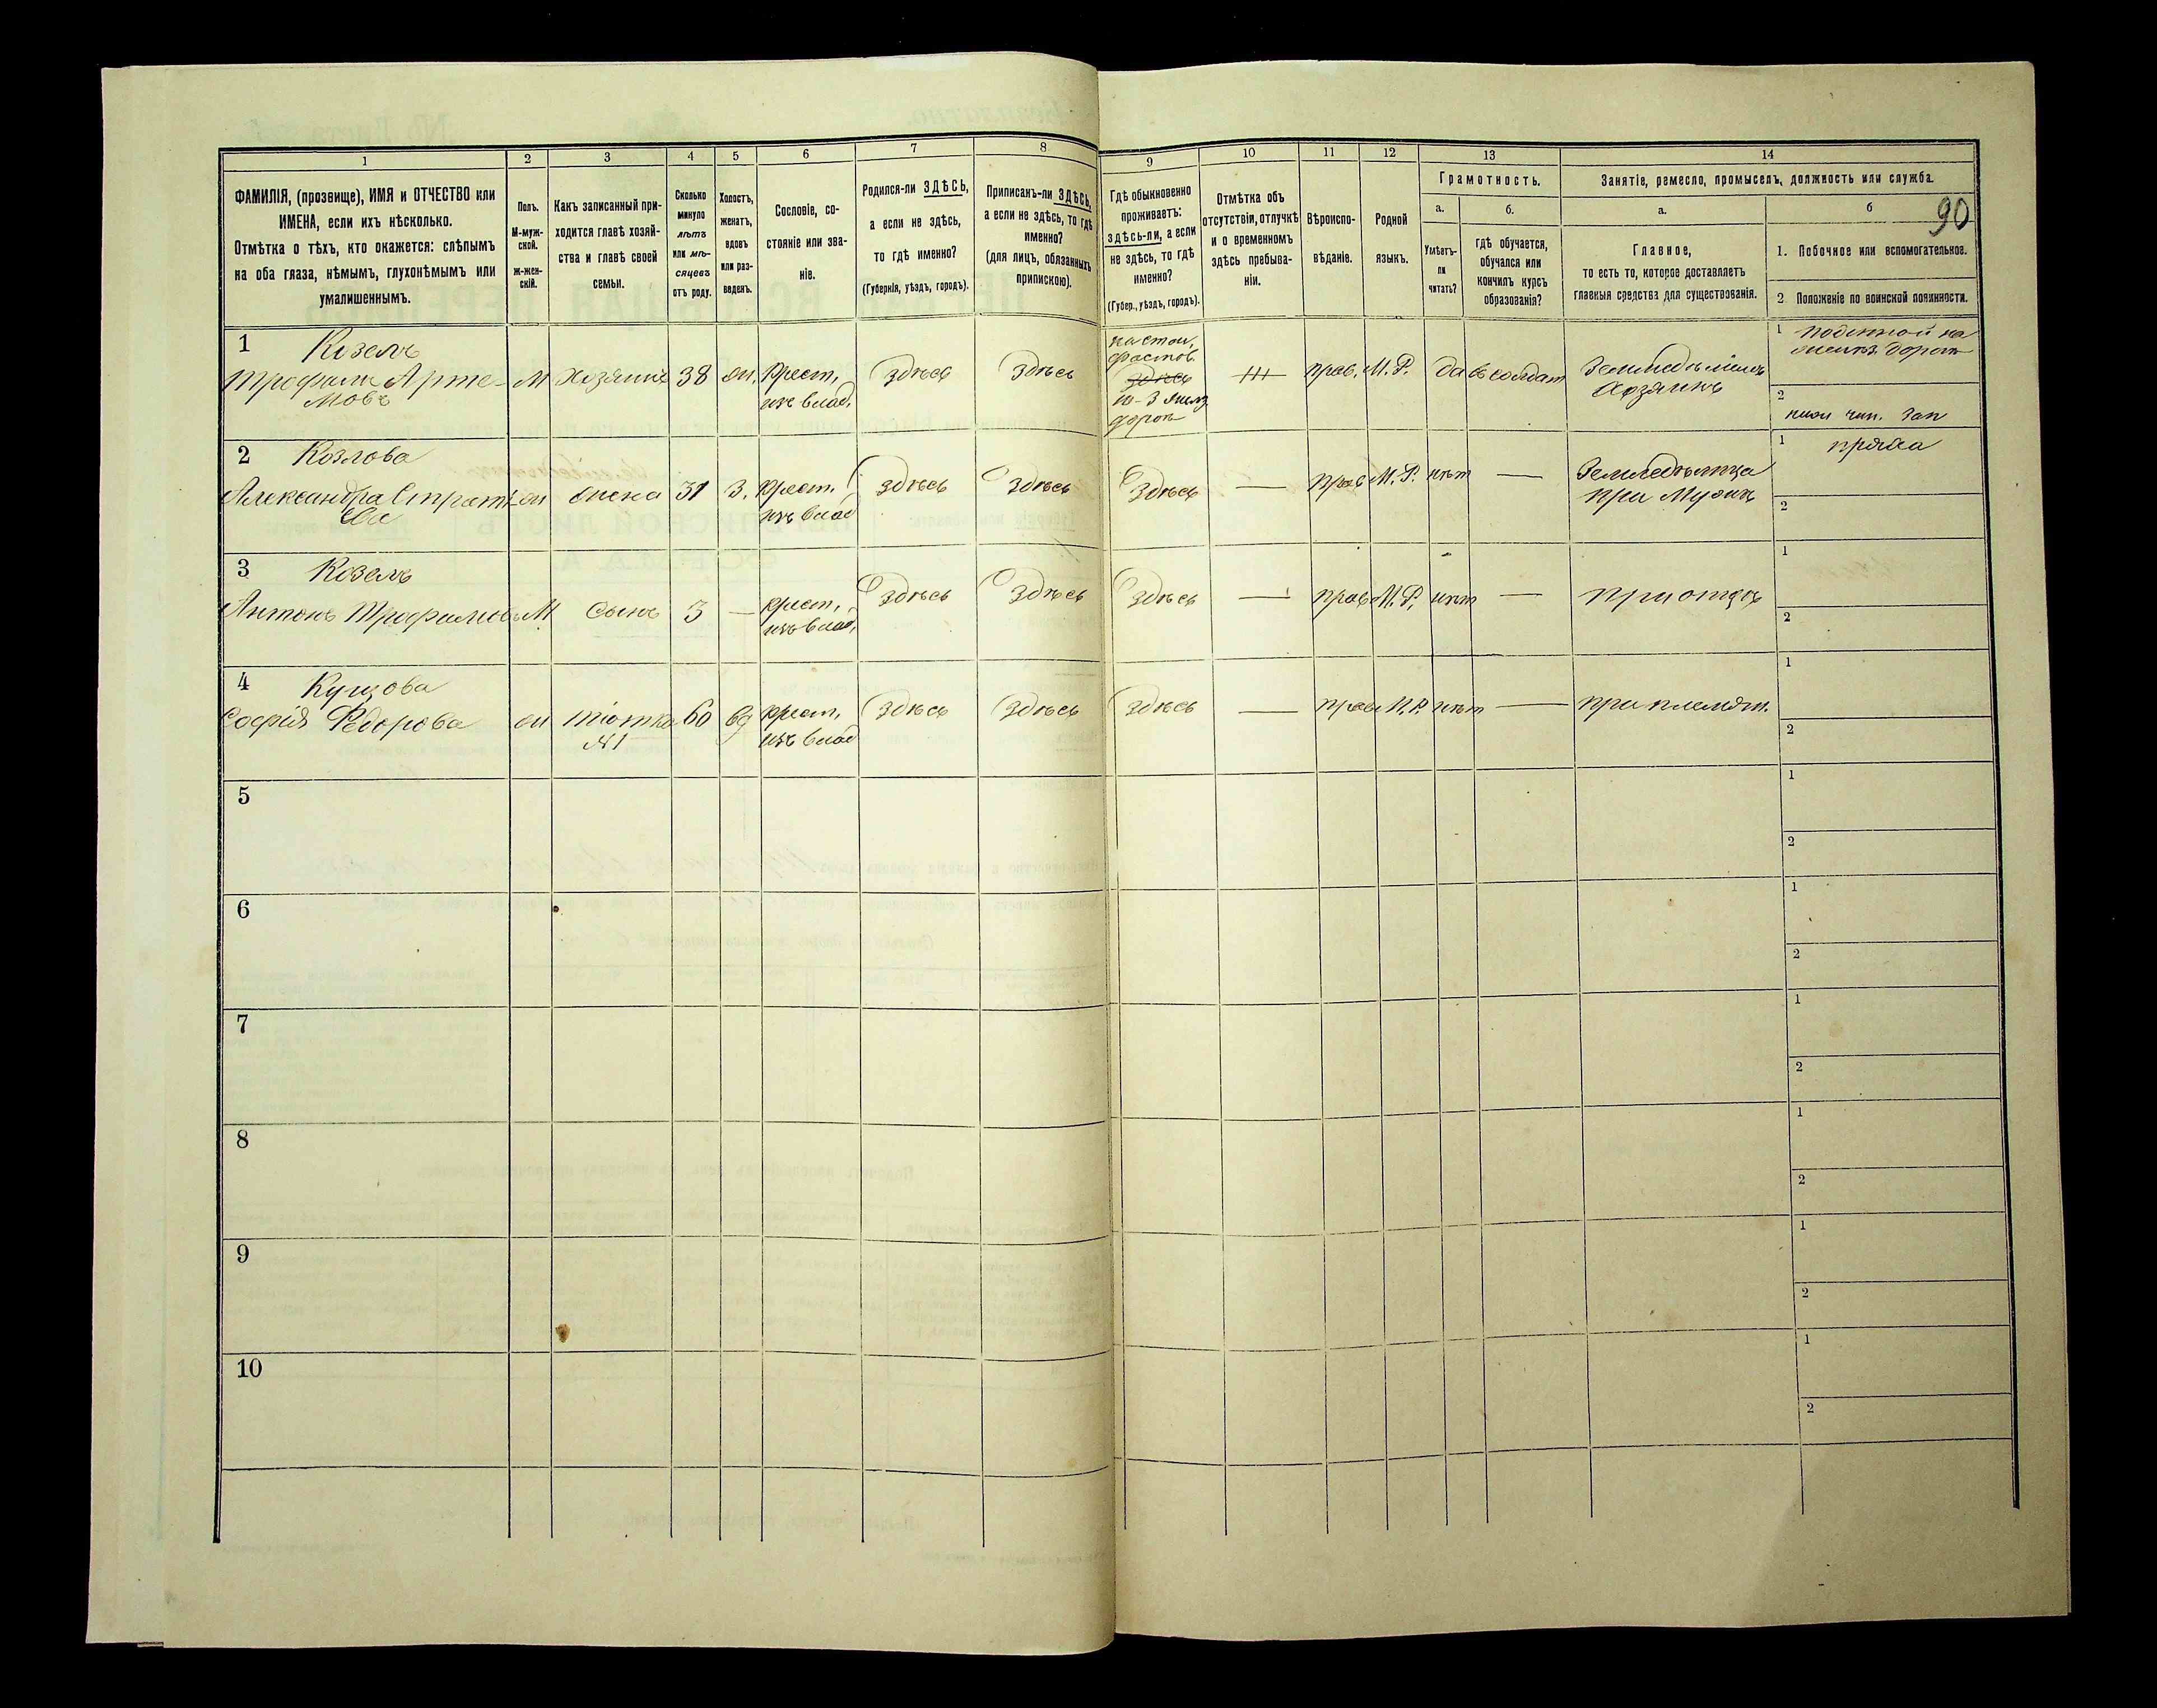 1
2
3
4
5
6
7
8
9
10
11
12
13
14
ФАМИЛІЯ, (прозвище), ИМЯ и ОТЧЕСТВО или
ИМЕНА, если ихъ нѣсколько.
Отмѣтка о тѣхъ, кто окажется: слѣпымъ
на оба глаза, нѣмымъ, глухонѣмымъ или
умалишеннымъ.
Полъ.
М-муж-
ской.
Ж-жен-
скій.
Какъ записанный при-
ходится главѣ хозяй-
ства и главѣ своей
семьи.
Сколько
минуло
лѣтъ
или мѣ-
сяцевъ
отъ роду.
Холостъ,
женатъ,
вдовъ
или раз-
веденъ.
Сословіе, со-
стояніе или зва-
ніе.
Родился-ли ЗДѢСЬ,
а если не здѣсь,
то гдѣ именно?
(Губернія, уѣздъ, городъ).
Приписанъ-ли ЗДѢСЬ,
а если не здѣсь, то гдѣ
именно?
(для лицъ, обязанныхъ
припискою).
Гдѣ обыкновенно
проживаетъ:
здѣсь-ли, а если
не здѣсь, то гдѣ
именно?
(Губер., уѣздъ, городъ).
Отмѣтка объ
отсутствіи, отлучкѣ
и о временномъ
здѣсь пребыва-
ніи.
Вѣроиспо-
вѣданіе.
Родной
языкъ.
Грамотность.
а.
Умѣетъ-
ли
читать?
б.
гдѣ обучается,
обучался или
кончилъ курсъ
образованія?
Занятіе, ремесло, промыселъ, должность или служба.
а.
Главное,
то есть то, которое доставляетъ
главныя средства для существованія.
б
90
1. Побочное или вспомогательное.
2. Положеніе по воинской повинности.
1
Козелъ
Трофимъ Арте-
мовъ
М
Хозяинъ
38
ж.
крест.
изъ влад.
Здѣсь
Здѣсь
на стан.
фастов.
здѣсь
дорог
прав.
М. Р.
да
въ солдат
Хозяинъ
1
поденной на
2
нижн чин. зап
2
Козлова
Александра
ж
жена
31
З.
крест.
изъ влад
Здѣсь
Здѣсь
Здѣсь
—
прав
М. Р.
нѣт
—
Земледѣлица
при Мужѣ
1
пряха
2
3
Козелъ
Антонъ Трофимовъ
М
Сынъ
3
—
крест.
изъ влад.
Здѣсь
Здѣсь
Здѣсь
—
прав
М. Р.
нѣт
—
при отцѣ
1
2
4
Софія Федорова
ж
тіотка
№1
60
вд
крест.
изъ влад
Здѣсь
Здѣсь
Здѣсь
—
прав
М. Р.
нѣт
—
при племян.
1
2
5
1
2
6
1
2
7
1
2
8
1
2
9
1
2
10
1
2